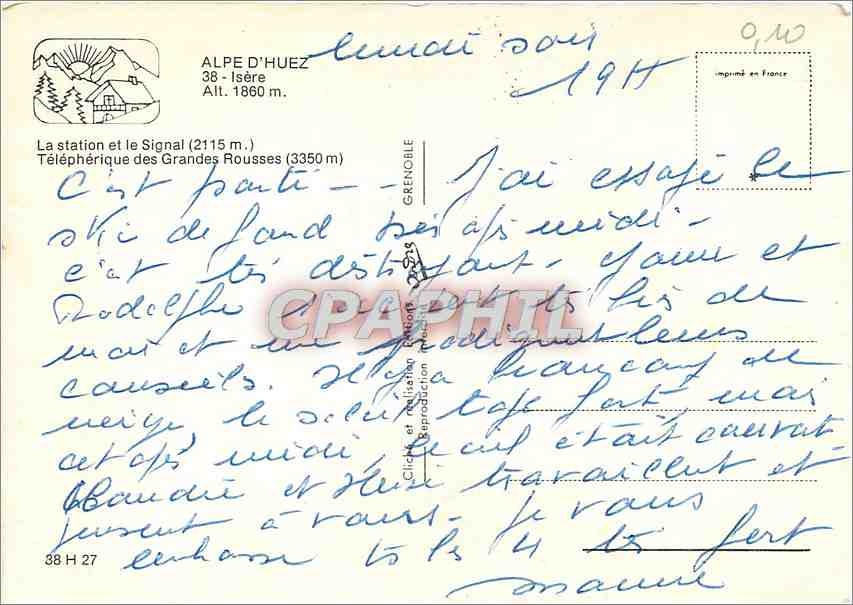 0,10
ALPE D'HUEZ
38 - Isère
Alt. 1860 m.
lundi soir
19 H
imprimé en France
La station et le Signal (2115 m.)
Téléphérique des Grandes Rousses (3350 m)
C'est parti -- J'ai essayé le
ski de fond cet après midi -
c'est très - et
Rodolphe sont très près de
moi et me prodiguent leurs
conseils. Il y a beaucoup de
neige, le soleil tape fort, mais
cet après midi, le ciel était couvert
Claudie et travaillent et
pensent à vous - je vous
embrasse ts les 4 ts fort
GRENOBLE
Cliché et réalisation Editions André
Reproduction interdite
CPAPHIL
38 H 27